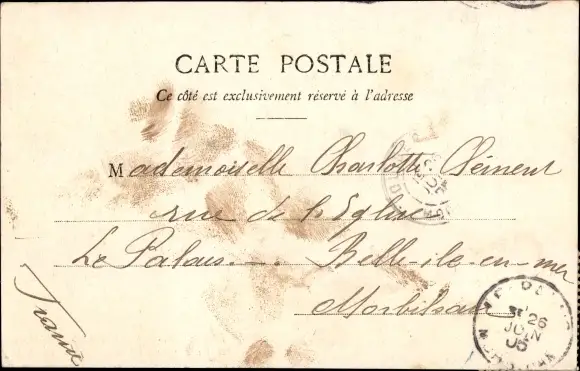 CARTE POSTALE
Ce côté est exclusivement réservé à l'adresse
Mademoiselle Charlotte Clément
rue de l'Eglise
Le Palais Belle-ile-en-mer
Morbihan
France
26
JUIN
05